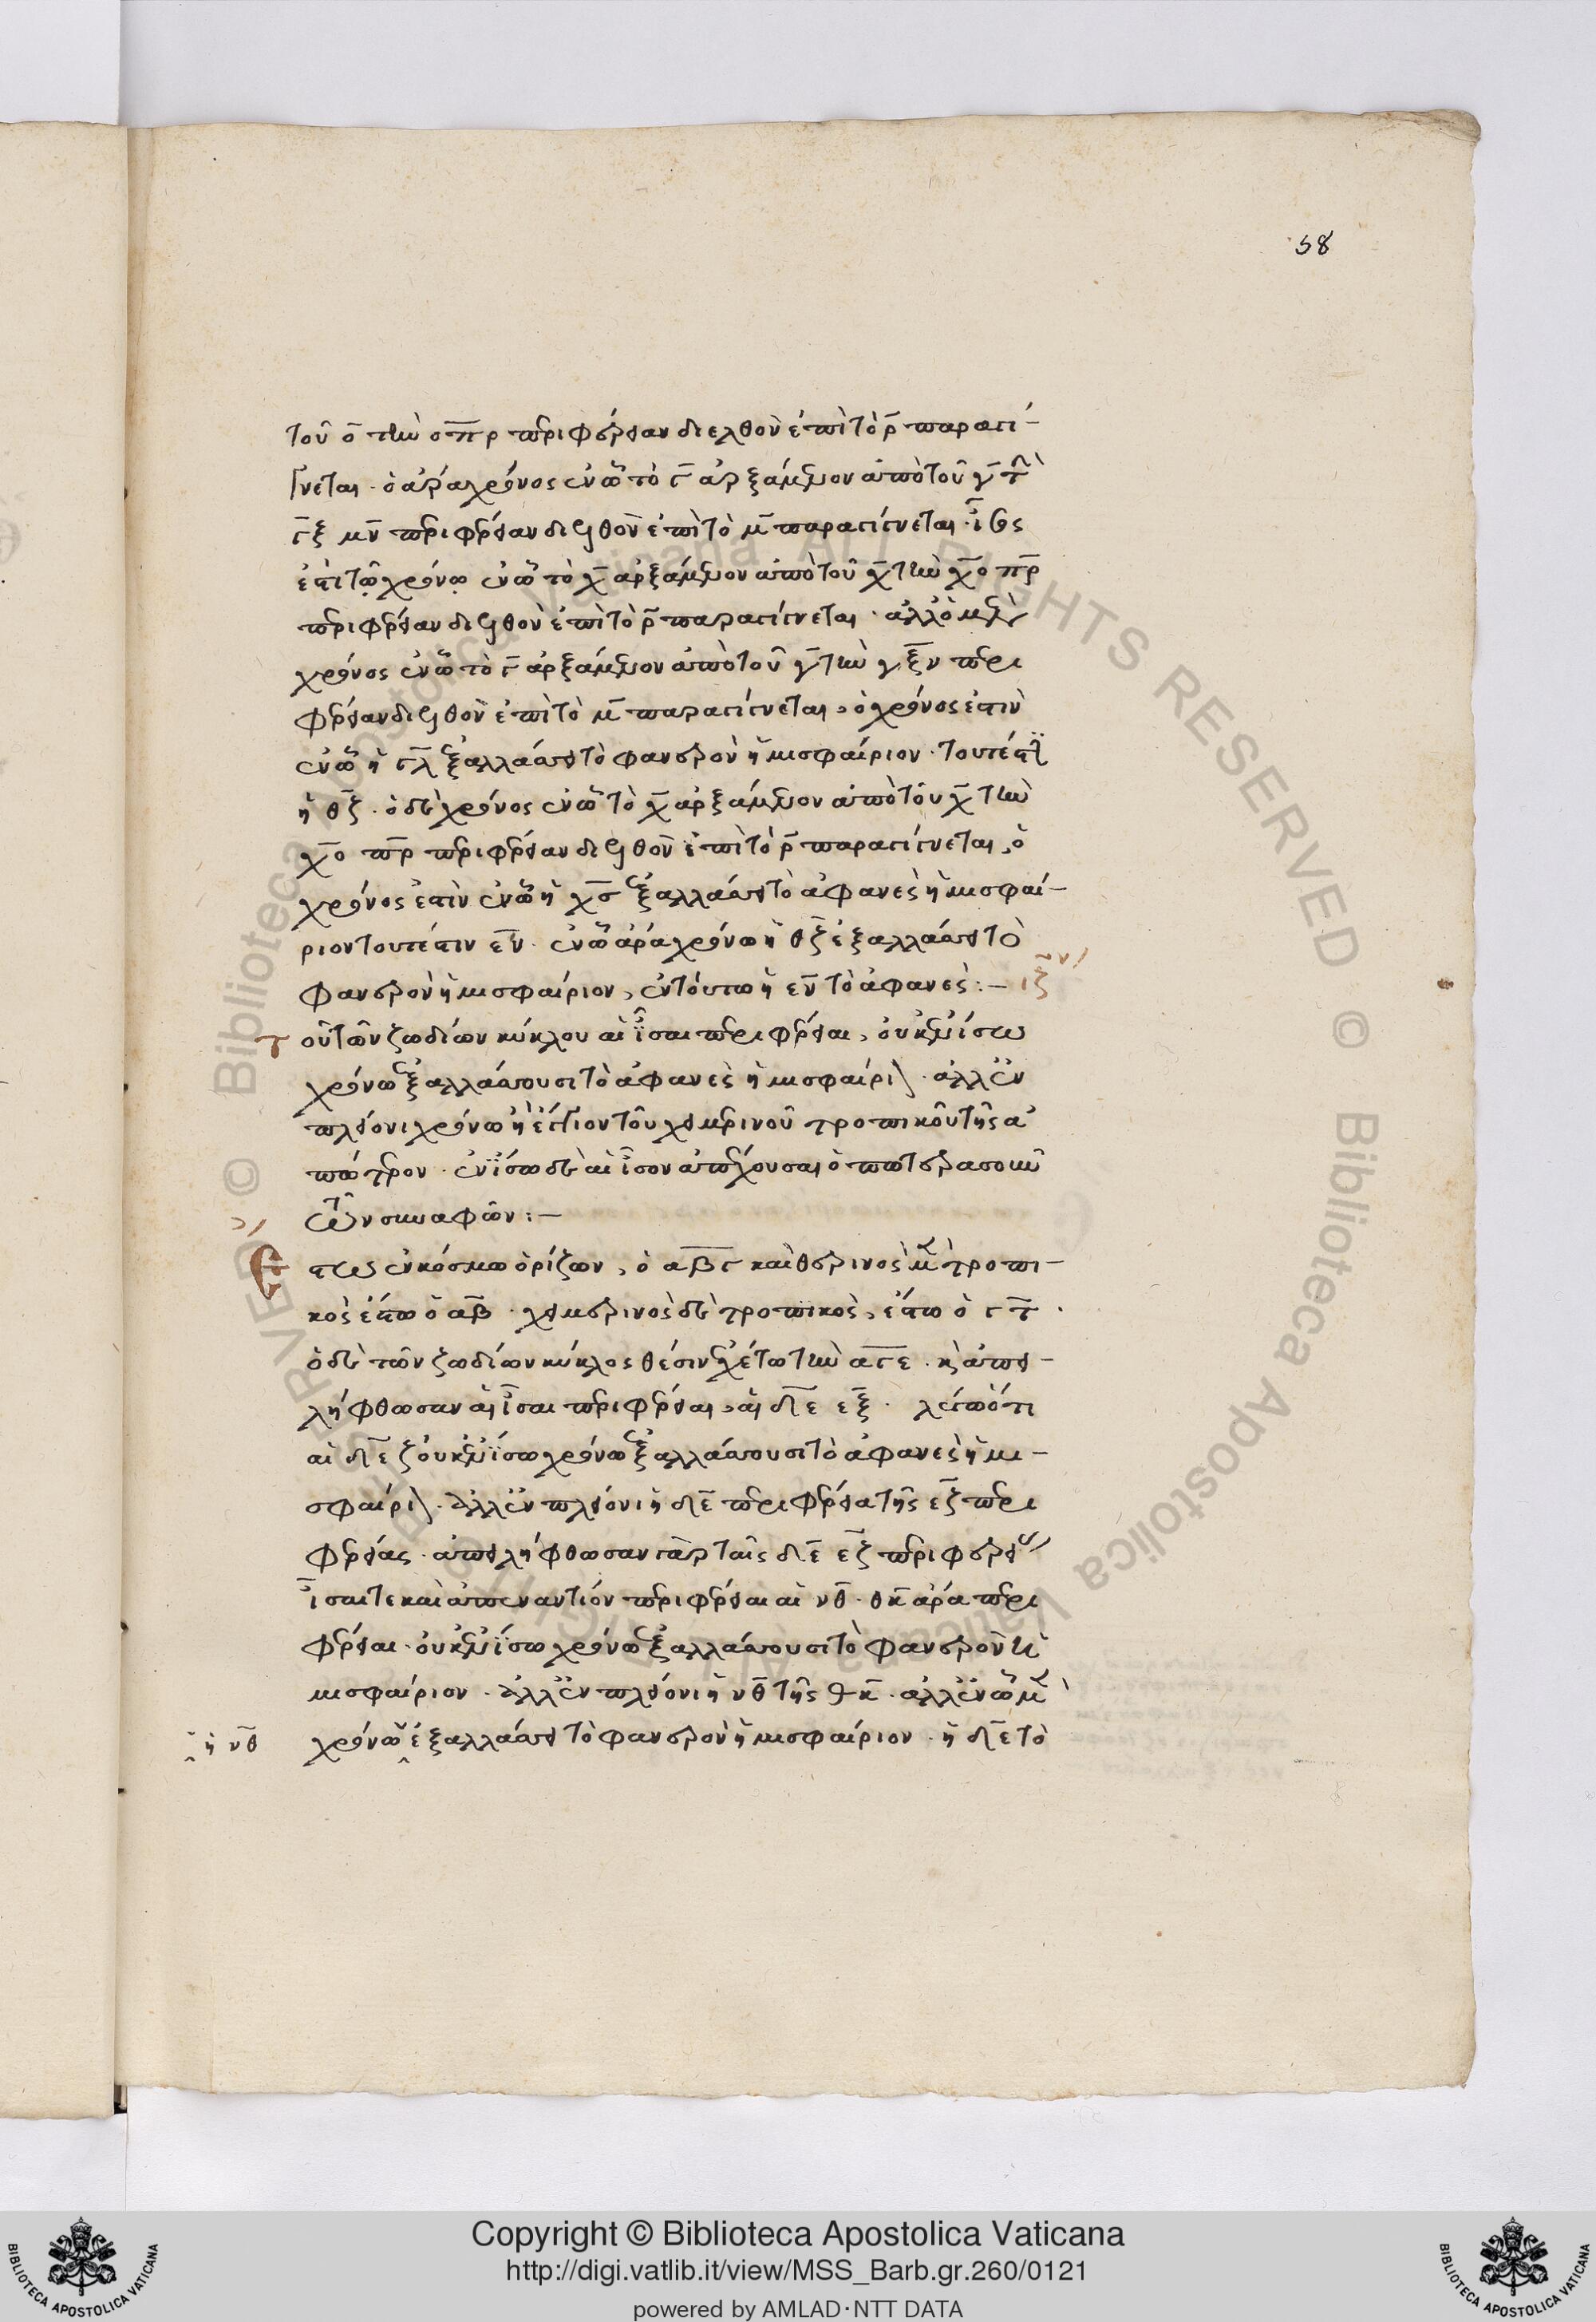 58
τοῦ ο̄ τὴν ο̅π̅ρ περιφέρειαν διελθὸν ἐπὶ τὸ ρ̄ παραγί-
γνεται. ὁ ἄρα χρόνος ἐν ᾧ τὸ γ̄ ἀρξάμενον ἀπὸ τοῦ γ̄ τὴν
γ̅ξ̅ μ̅ν̅ περιφέρειαν διελθὸν ἐπὶ τὸ μ̄ παραγίγνεται. ἴσος
ἐστὶ τῷ χρόνῳ ἐν ᾧ τὸ χ̄ ἀρξάμενον ἀπὸ τοῦ χ̄ τὴν χ̅ο̅ π̅ρ̅
περιφέρειαν διελθὸν ἐπὶ τὸ ρ̄ παραγίγνεται. ἀλλ' ὁ μὲν
χρόνος ἐν ᾧ τὸ γ̄ ἀρξάμενον ἀπὸ τοῦ γ̄ τὴν γ̅ξ̅ν̅ περι
φέρειαν διελθὸν ἐπὶ τὸ μ̄ παραγίγνεται, ὁ χρόνος ἐστὶν
ἐν ᾧ ἡ γ̅λ̅ ἐξαλλάσσει τὸ φανερὸν ἡμισφαίριον. τουτέστιν
ἡ θ̅ζ̅. ὁ δὲ χρόνος ἐν ᾧ τὸ χ̄ ἀρξάμενον ἀπὸ τοῦ χ̄ τὴν
χ̅ο̅ π̅ρ̅ περιφέρειαν διελθὸν ἐπὶ τὸ ρ̄ παραγίγνεται, ὁ
χρόνος ἐστὶν ἐν ᾧ ἡ χ̅σ̅ ἐξαλλάσσει τὸ ἀφανὲς ἡμισφαί-
ριον τουτέστιν ε̅ν̅. ἐν ᾧ ἄρα χρόνῳ ἡ θ̅ξ̅ ἐξαλλάσσει τὸ
φανερὸν ἡμισφαίριον, ἐν τούτῳ ἡ ε̅ν̅ τὸ ἀφανές:–
τοῦ τῶν ζωδίων κύκλου αἱ ἴσαι περιφέρειαι, οὐκ ἐν ἴσῳ
χρόνῳ ἐξαλλάσσουσι τὸ ἀφανὲς ἡμισφαίριον. ἀλλ' ἐν
πλείονι χρόνῳ ἡ ἔγγιον τοῦ χειμερινοῦ τροπικοῦ τῆς ἀ
πώτερον. ἐν ἴσῳ δὲ αἱ ἴσον ἀπέχουσαι ὁποτερασοῦν
τῶν συναφῶν:–
Ἔστω ἐν κόσμῳ ὁρίζων, ὁ α̅β̅γ̅ καὶ θερινὸς μὲν τροπι-
κὸς ἔστω ὁ α̅β̅. χειμερινὸς δὲ τροπικὸς, ἔστω ὁ γ̅τ̅.
ὁ δὲ τῶν ζωδίων κύκλος θέσιν ἐχέτω τὴν α̅γ̅ε̅. καὶ ἀπει-
λήφθωσαν αἱ ἴσαι περιφέρειαι, αἱ δ̅ε̅ ε̅ξ̅. λέγω ὅτι
αἱ δ̅ε̅ ζ οὐκ ἐν ἴσῳ χρόνῳ ἐξαλλάσσουσι τὸ ἀφανὲς ἡμι-
σφαίριον. ἀλλ' ἐν πλείονι ἡ δ̅ε̅ περιφέρεια τῆς ε̅ζ̅ περι
φερείας. ἀπειλήφθωσαν γὰρ ταῖς δ̅ε̅ ε̅ζ̅ περιφερείαις
ἴσαι τε καὶ ἀπεναντίον περιφέρειαι αἱ ν̅θ̅. θ̅κ̅ ἄρα περι
φέρειαι. οὐκ ἐν ἴσῳ χρόνῳ ἐξαλλάσσουσι τὸ φανερὸν ἡ
μισφαίριον. ἀλλ' ἐν πλείονι ἡ ν̅θ̅ τῆς θ̅κ̅. ἀλλ' ἐν ᾧ μὲν
ἡ ν̅θ̅
χρόνῳ ἐξαλλάσσει τὸ φανερὸν ἡμισφαίριον. ἡ δ̅ε̅ τὸ
Copyright © Biblioteca Apostolica Vaticana
http://digi.vatlib.it/view/MSS_Barb.gr.260/0121
powered by AMLAD·NTT DATA